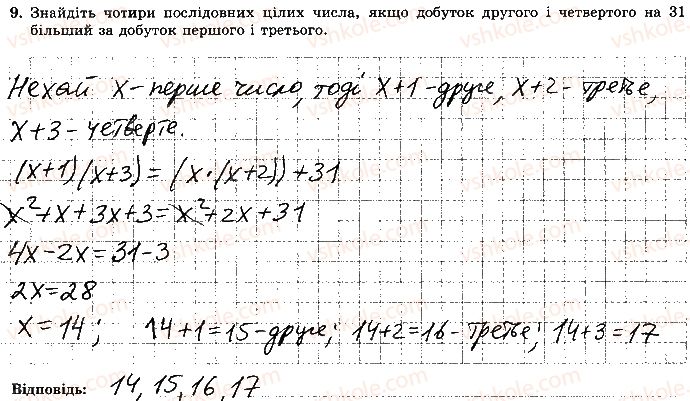 9. Знайдіть чотири послідовних цілих числа, якщо добуток другого і четвертого на 31
більший за добуток першого і третього.
Нехай x - перше число, тоді x+1 - друге, x+2 - третє,
x+3 - четверте.
(x+1)(x+3) = (x·(x+2))+31
x²+x+3x+3 = x²+2x+31
4x-2x=31-3
2x=28
x=14; 14+1=15-друге; 14+2=16-третє; 14+3=17
Відповідь: 14, 15, 16, 17